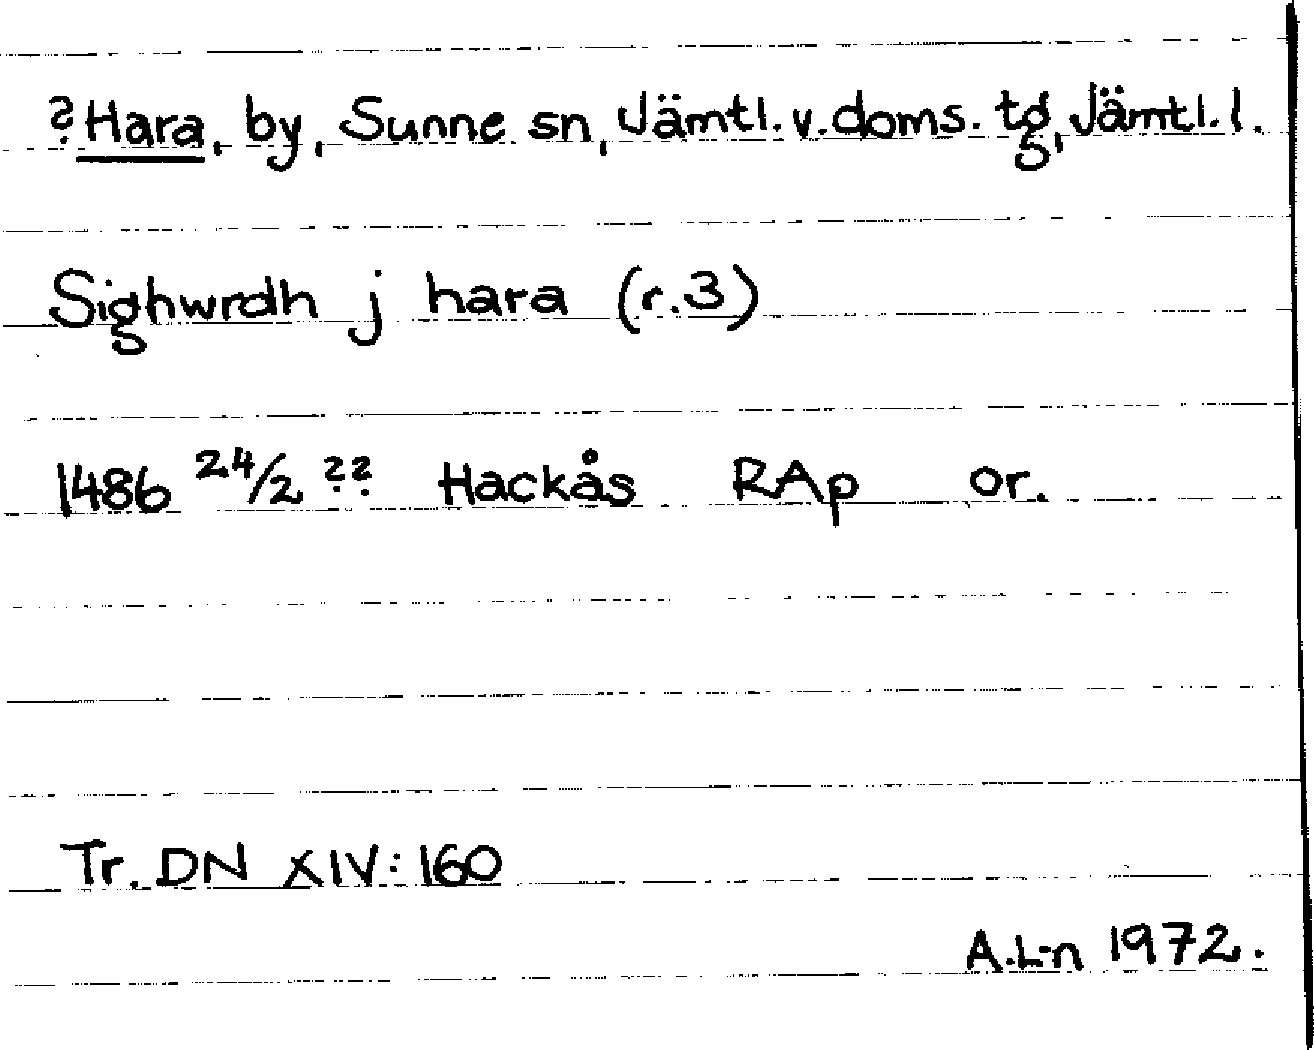 ?Hara, by, Sunne sn, Jämtl. v. doms. tg, Jämtl. l.
Sighwrdh j hara (r.3)
1486 24/2 ?? Hackås RAp or.
Tr. DN XIV: 160
A.L-n 1972.